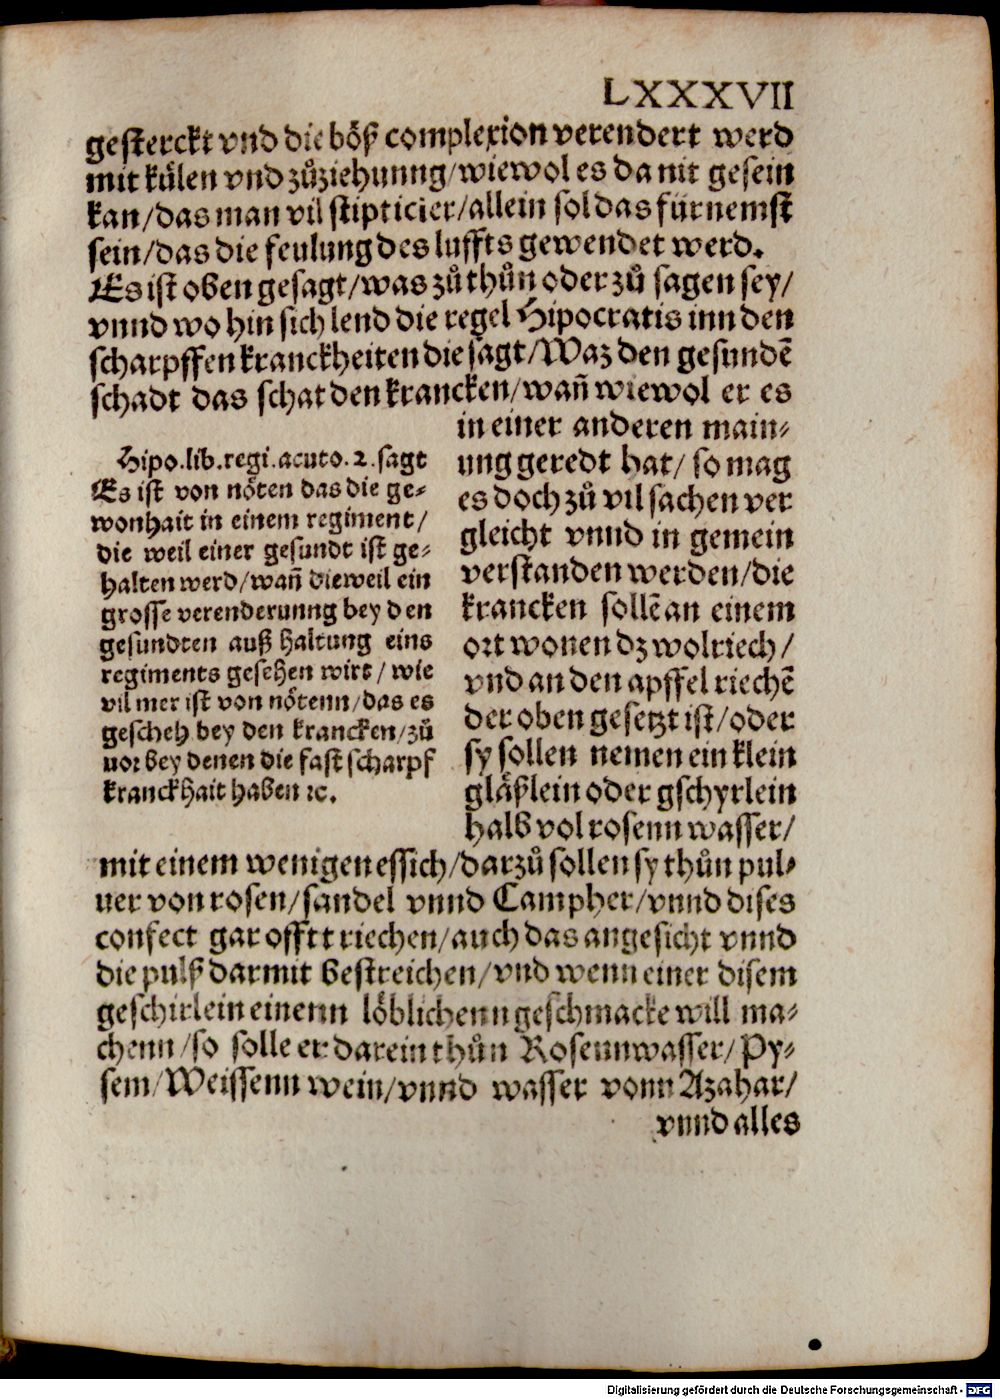 LXXXVII
gesterckt vnd die böß complexion verendert werd
mit külen vnd zůziehunng/wiewol es da nit gesein
kan/das man vil stipticier/allein sol das fürnemst
sein/das die feulung des luffts gewendet werd.
Es ist oben gesagt/was zů thůn oder zů sagen sey/
vnnd wo hin sich lend die regel Hipocratis inn den
scharpffen kranckheiten die sagt/Waz den gesundē
schadt das schat den krancken/wañ wiewol er es
in einer anderen main⸗
ung geredt hat/ so mag
es doch zů vil sachen ver
gleicht vnnd in gemein
verstanden werden/die
krancken sollē an einem
ort wonen dz wolriech/
vnd an den apffel riechē
der oben gesetzt ist/oder
sy sollen nemen ein klein
gläßlein oder gschyrlein
halb vol rosenn wasser/
Hipo.lib.regi.acuto.2.sagt
Es ist von nöten das die ge⸗
wonhait in einem regiment/
die weil einer gesundt ist ge⸗
halten werd/wañ dieweil ein
grosse verenderunng bey den
gesundten auß haltung eins
regiments gesehen wirt/ wie
vil mer ist von nötenn/das es
gescheh bey den krancken/zů
uor bey denen die fast scharpf
kranckhait haben ⁊c.
mit einem wenigen essich/darzů sollen sy thůn pul⸗
uer von rosen/sandel vnnd Campher/vnnd dises
confect gar offtt riechen/auch das angesicht vnnd
die pulß darmit bestreichen/vnd wenn einer disem
geschirlein einenn löblichenn geschmacke will ma⸗
chenn/so solle er darein thůn Rosennwasser/Py⸗
sem/Weissenn wein/vnnd wasser vonn Azahar/
vnnd alles
Digitalisierung gefördert durch die Deutsche Forschungsgemeinschaft - DFG